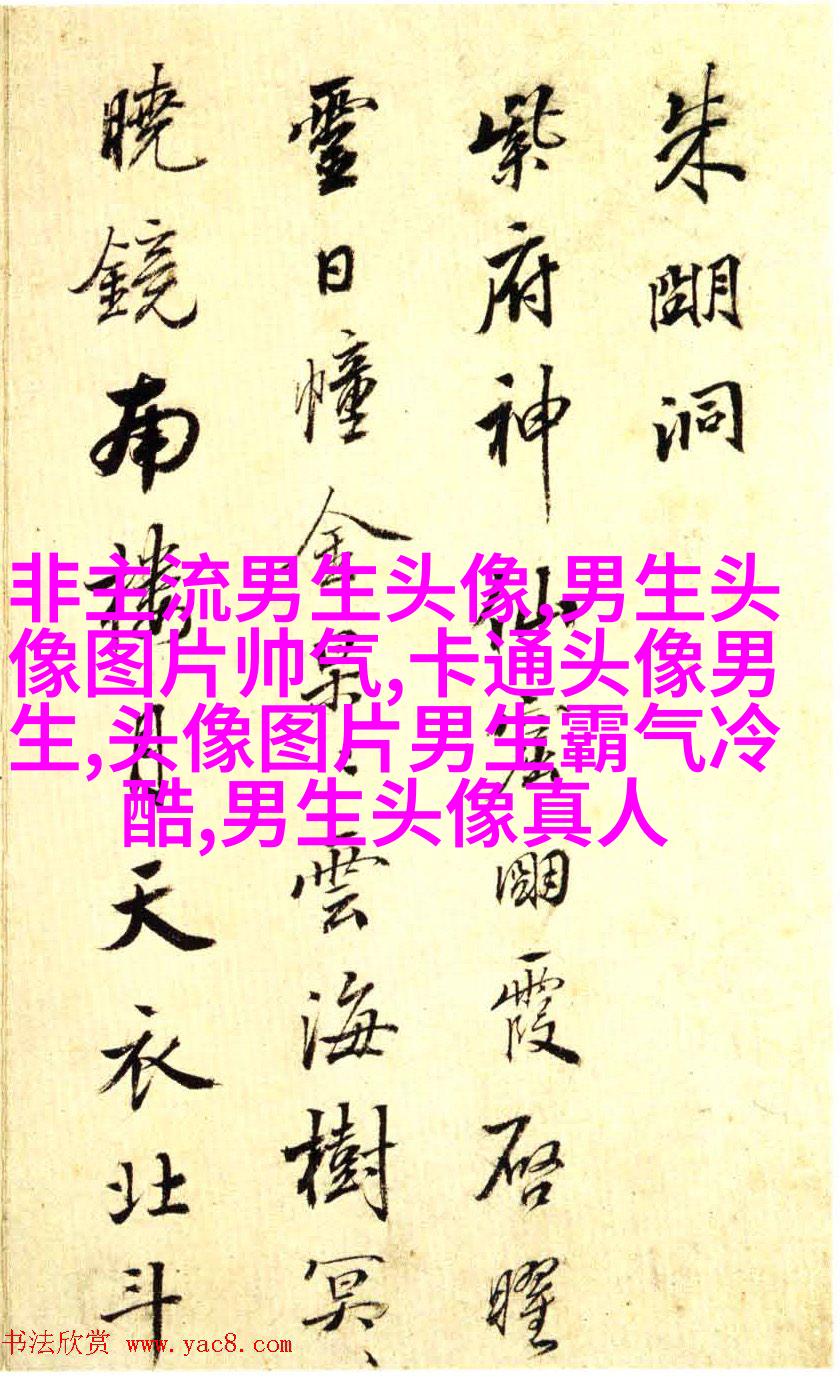 朱明洞
紫府神仙窟朙霞啓曜
靈日幢金景〻雲海樹冥〻
曉鏡南樓月天衣北斗
非主流男生头像,男生头
像图片帅气,卡通头像男
生,头像图片男生霸气冷
酷,男生头像真人
书法欣赏 www.yac8.com